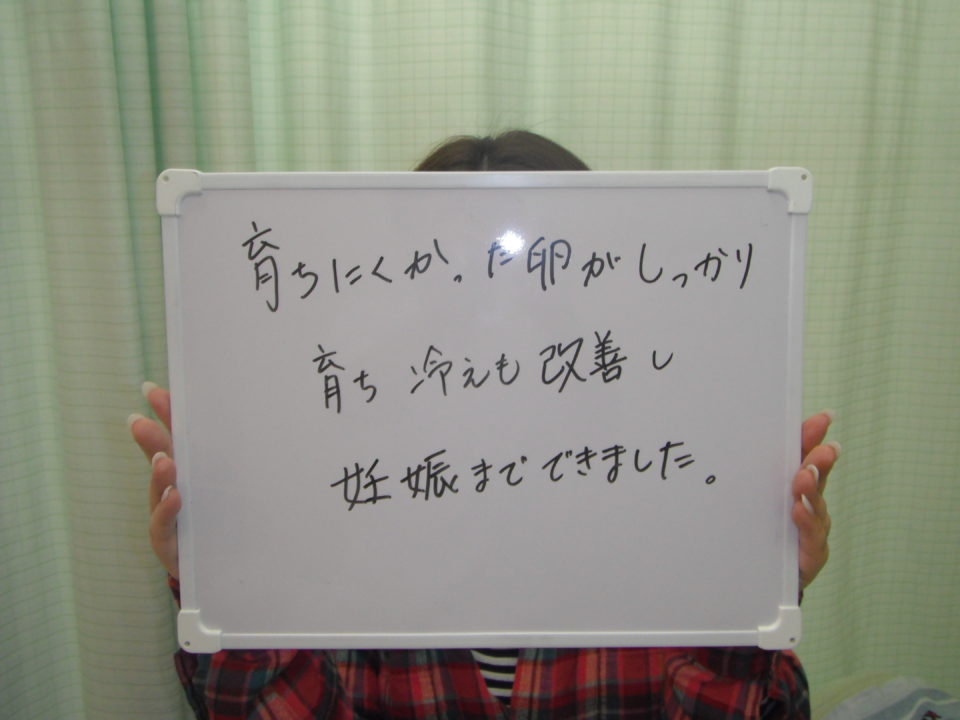 育ちにくかった卵がしっかり
育ち 冷えも改善し
妊娠までできました。